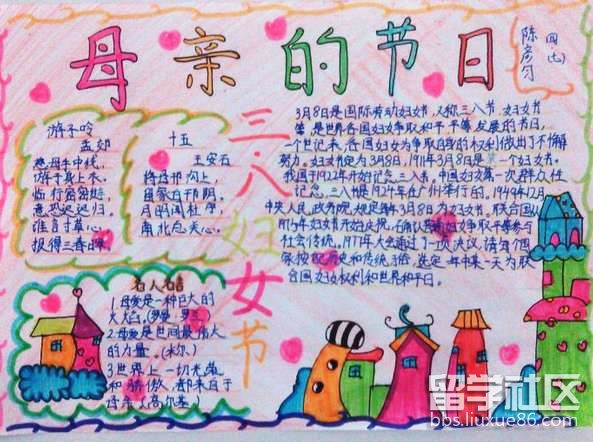 母亲的节日
四(七)
陈彦匀
三·八妇女节
游子吟
孟郊
慈母手中线,
游子身上衣。
临行密密缝,
意恐迟迟归。
谁言寸草心,
报得三春晖
十五
王安石
将母邗沟上,
留家白邗阴。
月明闻杜宇,
南北总关心。
3月8日是国际劳动妇女节,又称三八节、妇女节
等,是世界各国妇女争取和平、平等、发展的节日,
一个世纪来,各国妇女为争取自身的权利做出了不懈
努力。妇女节定为3月8日,1911年3月8日是第一个妇女节。
我国于1924年开始纪念三八
纪念三八节是1924年在广州举行的。1949年12月,
中央人民政务院规定每年3月8日为妇女节。联合国从
1975年
社会传统。1977年大会通过了一项决议,请每个国
家按照历史和传统习俗,选定一年中某一天为联
合国妇女权利和世界和平日。
名人名言
1.母爱是一种巨大的
火焰。(罗曼·罗兰)
2.母爱是世间最伟大
的力量。(米尔)
3.世界上一切光荣
和骄傲,都来自于
母亲。(高尔基)
留学社区
bbs.liuxue86.com